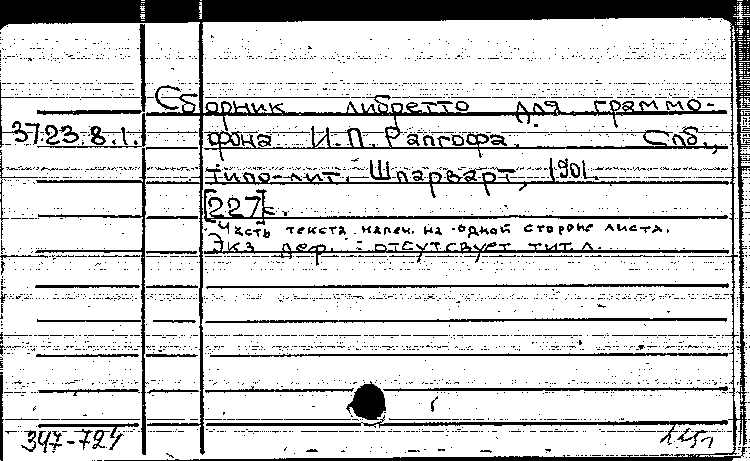 Сборник либретто для граммо-
37.23.8.1. фона И.П. Рапгофа. Спб.,
типо-лит. Шпарварт, 1901.
[227]с.
Часть текста напеч. на одной стороне листа.
Экз. деф.: отсутсвует тит. л.
347-724